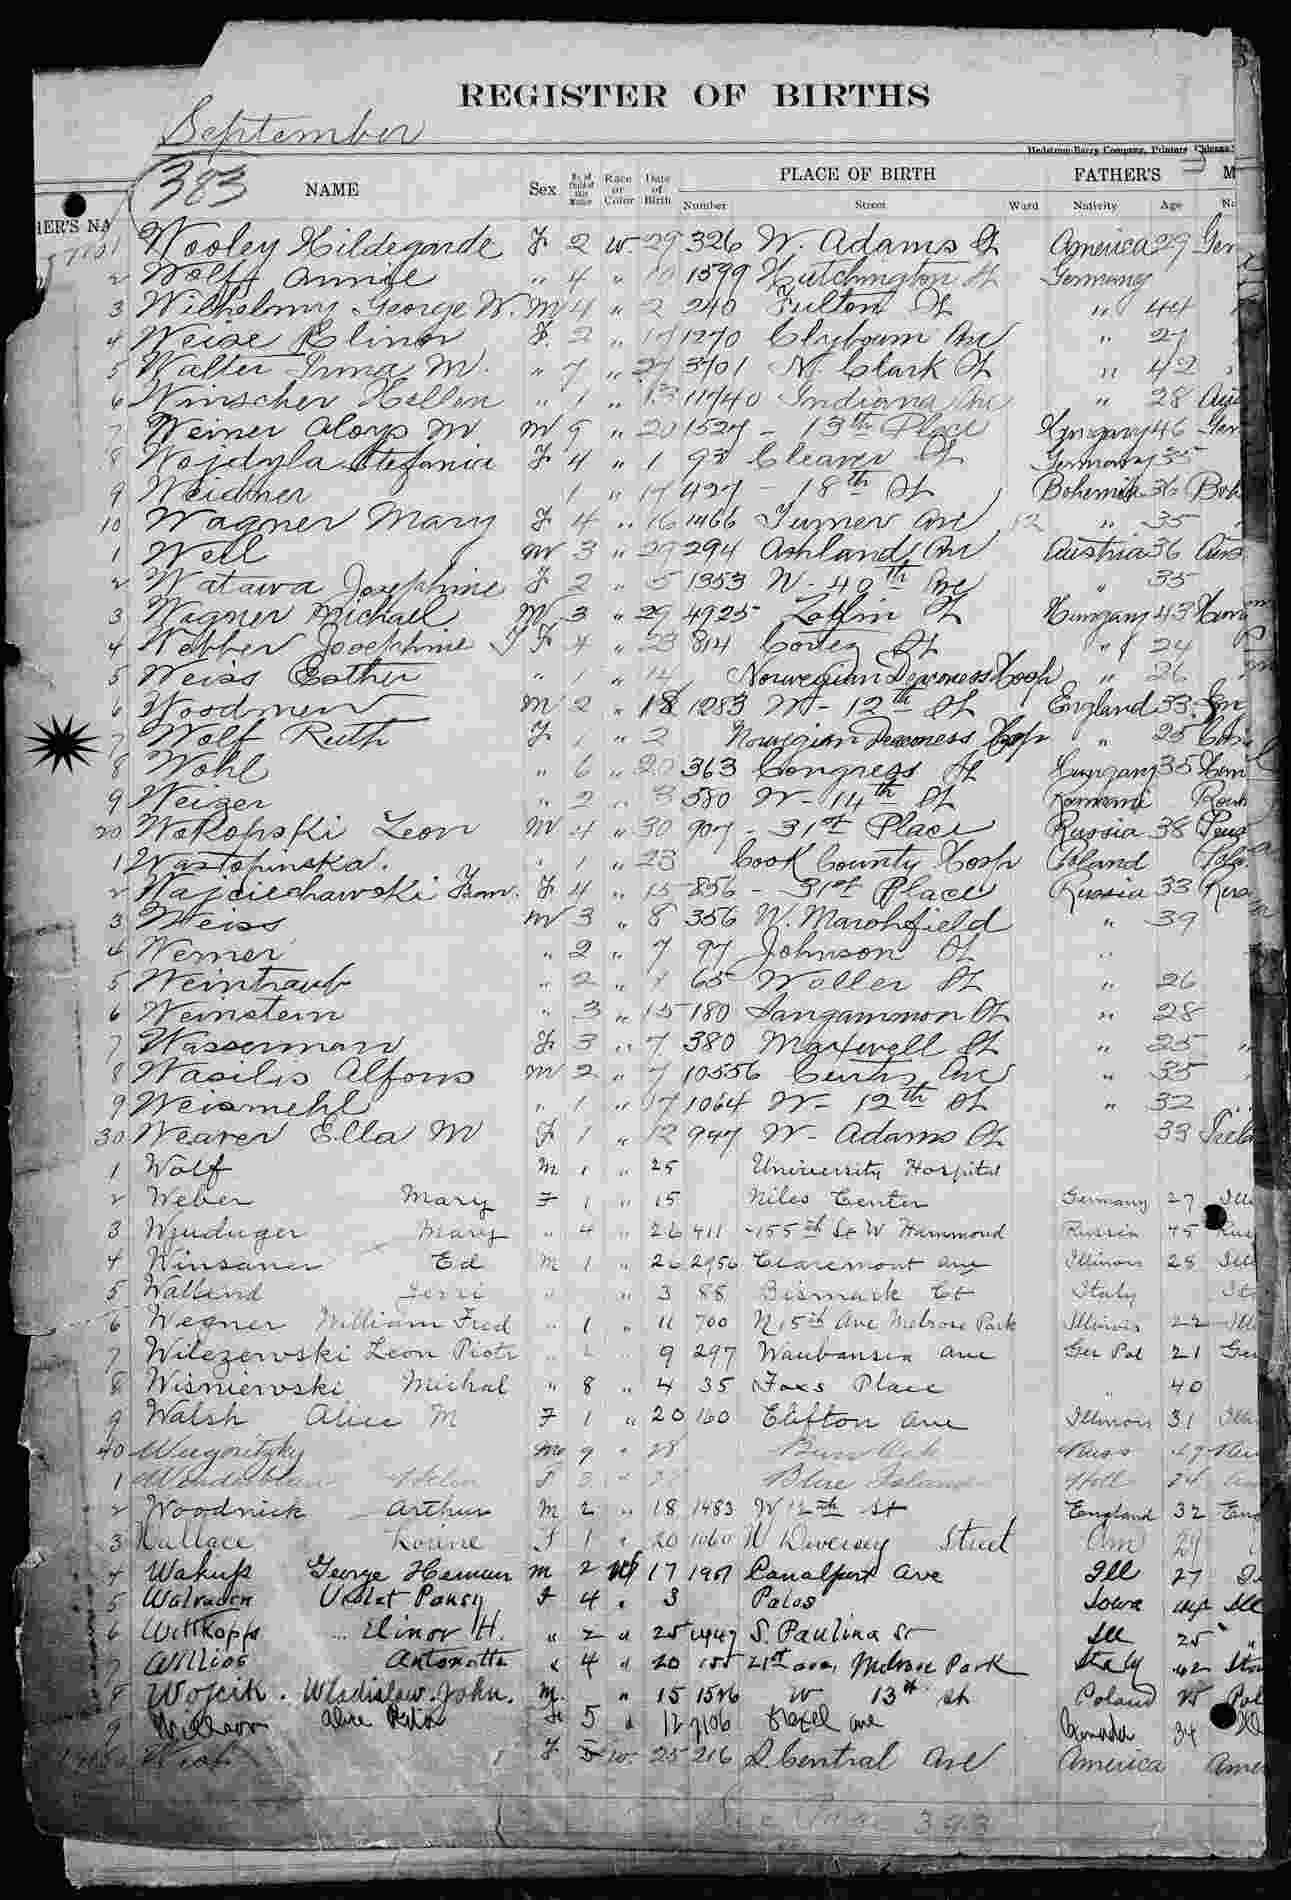 REGISTER OF BIRTHS
September
Hedstrom-Barry Company, Printers, Chicago
383
NAME Sex No. of Child of this Mother Race or Color Date of Birth PLACE OF BIRTH FATHER'S M
Number Street Ward Nativity Age Na
HER'S NA
1 Wooley Hildegarde F 2 W 29 326 W. Adams St America 29 Ger
2 Wolff Annie " 4 " 10 1599 Hutchington St Germany
3 Wilhelmy George W. M 4 " 2 240 Fulton St " 44
4 Weise Elinor F. 2 " 17 1270 Clybourn Ave " 27
5 Walter Irma M. " 7 " 27 3701 N. Clark St " 42
6 Winscher Hellen " 1 " 13 11740 Indiana Ave " 28 Aus
7 Weiner Aloys M M 9 " 20 1527 - 13th Place Hungary 46 Ger
8 Wojdyla Stefania F 4 " 1 93 Cleaver St Germany 35
9 Weidner 1 " 17 427 - 18th St Bohemia 36 Boh
10 Wagner Mary F 4 " 16 1466 Turner Ave 12 " 35
1 Weil M 3 " 29 294 Ashland Ave Austria 36 Aus
2 Watawa Josephine F 2 " 5 1353 N - 40th Ave " 35
3 Wagner Michael M 3 " 29 4925 Laflin St Hungary 43 Hun
4 Webber Josephine F 4 " 23 814 Cortez St " 24
5 Weiss Esther " 1 " 14 Norwegian Deaconess Hosp " 26
6 Woodmew M 2 " 18 1283 W - 12th St England 33 En
7 Wolf Ruth F 1 " 2 Norwegian Deaconess Hosp " 25
8 Wohl " 6 " 20 363 Congress St Hungary 35 Hun
9 Weizer " 2 " 3 580 W - 14th St Roumani Roum
20 Wokopski Leon M 4 " 30 907 - 31st Place Russia 38
1 Wastopinska. " 1 " 23 Cook County Hosp Poland Pola
2 Wajciechawski Fran. F 4 " 15 856 - 31st Place Russia 33 Russ
3 Weiss M 3 " 8 356 N. Marshfield " 39
4 Werner " 2 " 7 97 Johnson St "
5 Weintraub " 2 " 65 Waller St " 26
6 Weinstein " 3 " 15 180 Sangammon St " 28
7 Wasserman F 3 " 7 380 Maxwell St " 25
8 Wasilis Alfons M 2 " 7 10556 Curtis Ave " 35
9 Weismehl " 1 " 17 1064 W - 12th St " 32
30 Weaver Ella M F 1 " 12 947 W - Adams St 33 Irela
1 Wolf M 1 " 25 University Hospital
2 Weber Mary F 1 " 15 Niles Center Germany 27 Ill
3 Wjuduger Mary " 4 " 26 411 -155th St W Hammond Russia 45 Russ
4 Winsaner Ed M 1 " 26 2956 Claremont Ave Illinois 28 Ill
5 Wallend Jerri " " 3 88 Bismark Ct Italy Ita
6 Wegner William Fred " 1 " 11 700 N 15th Ave Melrose Park Illinois 22 Ill
7 Wilezewski Leon Piotr " " 9 297 Waubansia Ave Ger Pol 21 Ger
8 Wisniewski Michal " 8 " 4 35 Foxs Place " 40
9 Walsh Alice M F 1 " 20 160 Clifton Ave Illinois 31 Ill
40 M 9 " 28 Russ
1 Helen F 3 " Blue Island Holl
2 Woodnick Arthur M 2 " 18 1483 W 12th St England 32 Eng
3 Wallace Lorine F 1 " 20 1060 W Diversey Street Am 29
4 George Herman M 2 W 17 1901 Canalport Ave Ill 27
5 Walraven Violet Pansy F 4 " 3 Palos Iowa Ill
6 Wittkopps Elinor H. " 2 " 25 S. Paulina St Ill 25 "
7 Willios Antonetta " 4 " 20 155 21st Ave, Melrose Park Italy 42 Ita
8 Wojcik. Wladislaw. John. M. " 15 1526 W 13th St Poland 25 Pol
9 Alice F 5 " 12 7106 Hazel Ave Canada 34
F 5 W. 25 216 S. Central Ave America Amer
See Page 393